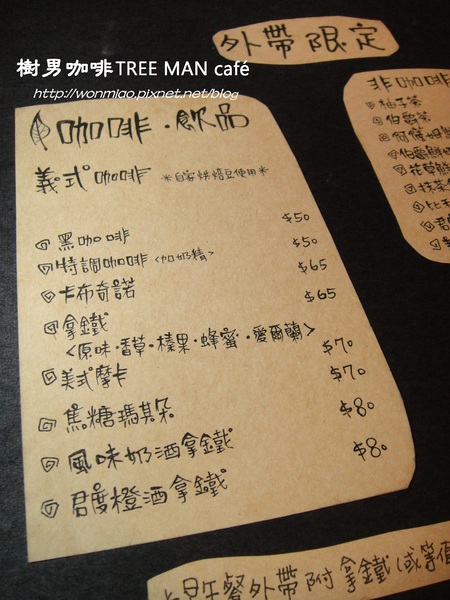 外帶限定
樹男咖啡TREE MAN café
http://wonmiao.pixnet.net/blog
咖啡·飲品
義式咖啡 *自家烘焙豆使用*
黑咖啡 $50
特調咖啡<加奶精> $50
卡布奇諾 $65
拿鐵 $65
<原味·香草·榛果·蜂蜜·愛爾蘭>
美式摩卡 $70
焦糖瑪其朵 $70
風味奶酒拿鐵 $80
君度橙酒拿鐵 $80
非咖啡
柚子茶
伯爵茶
伯爵鮮
花草鮮
抹茶
早午餐外帶附拿鐵(或等值